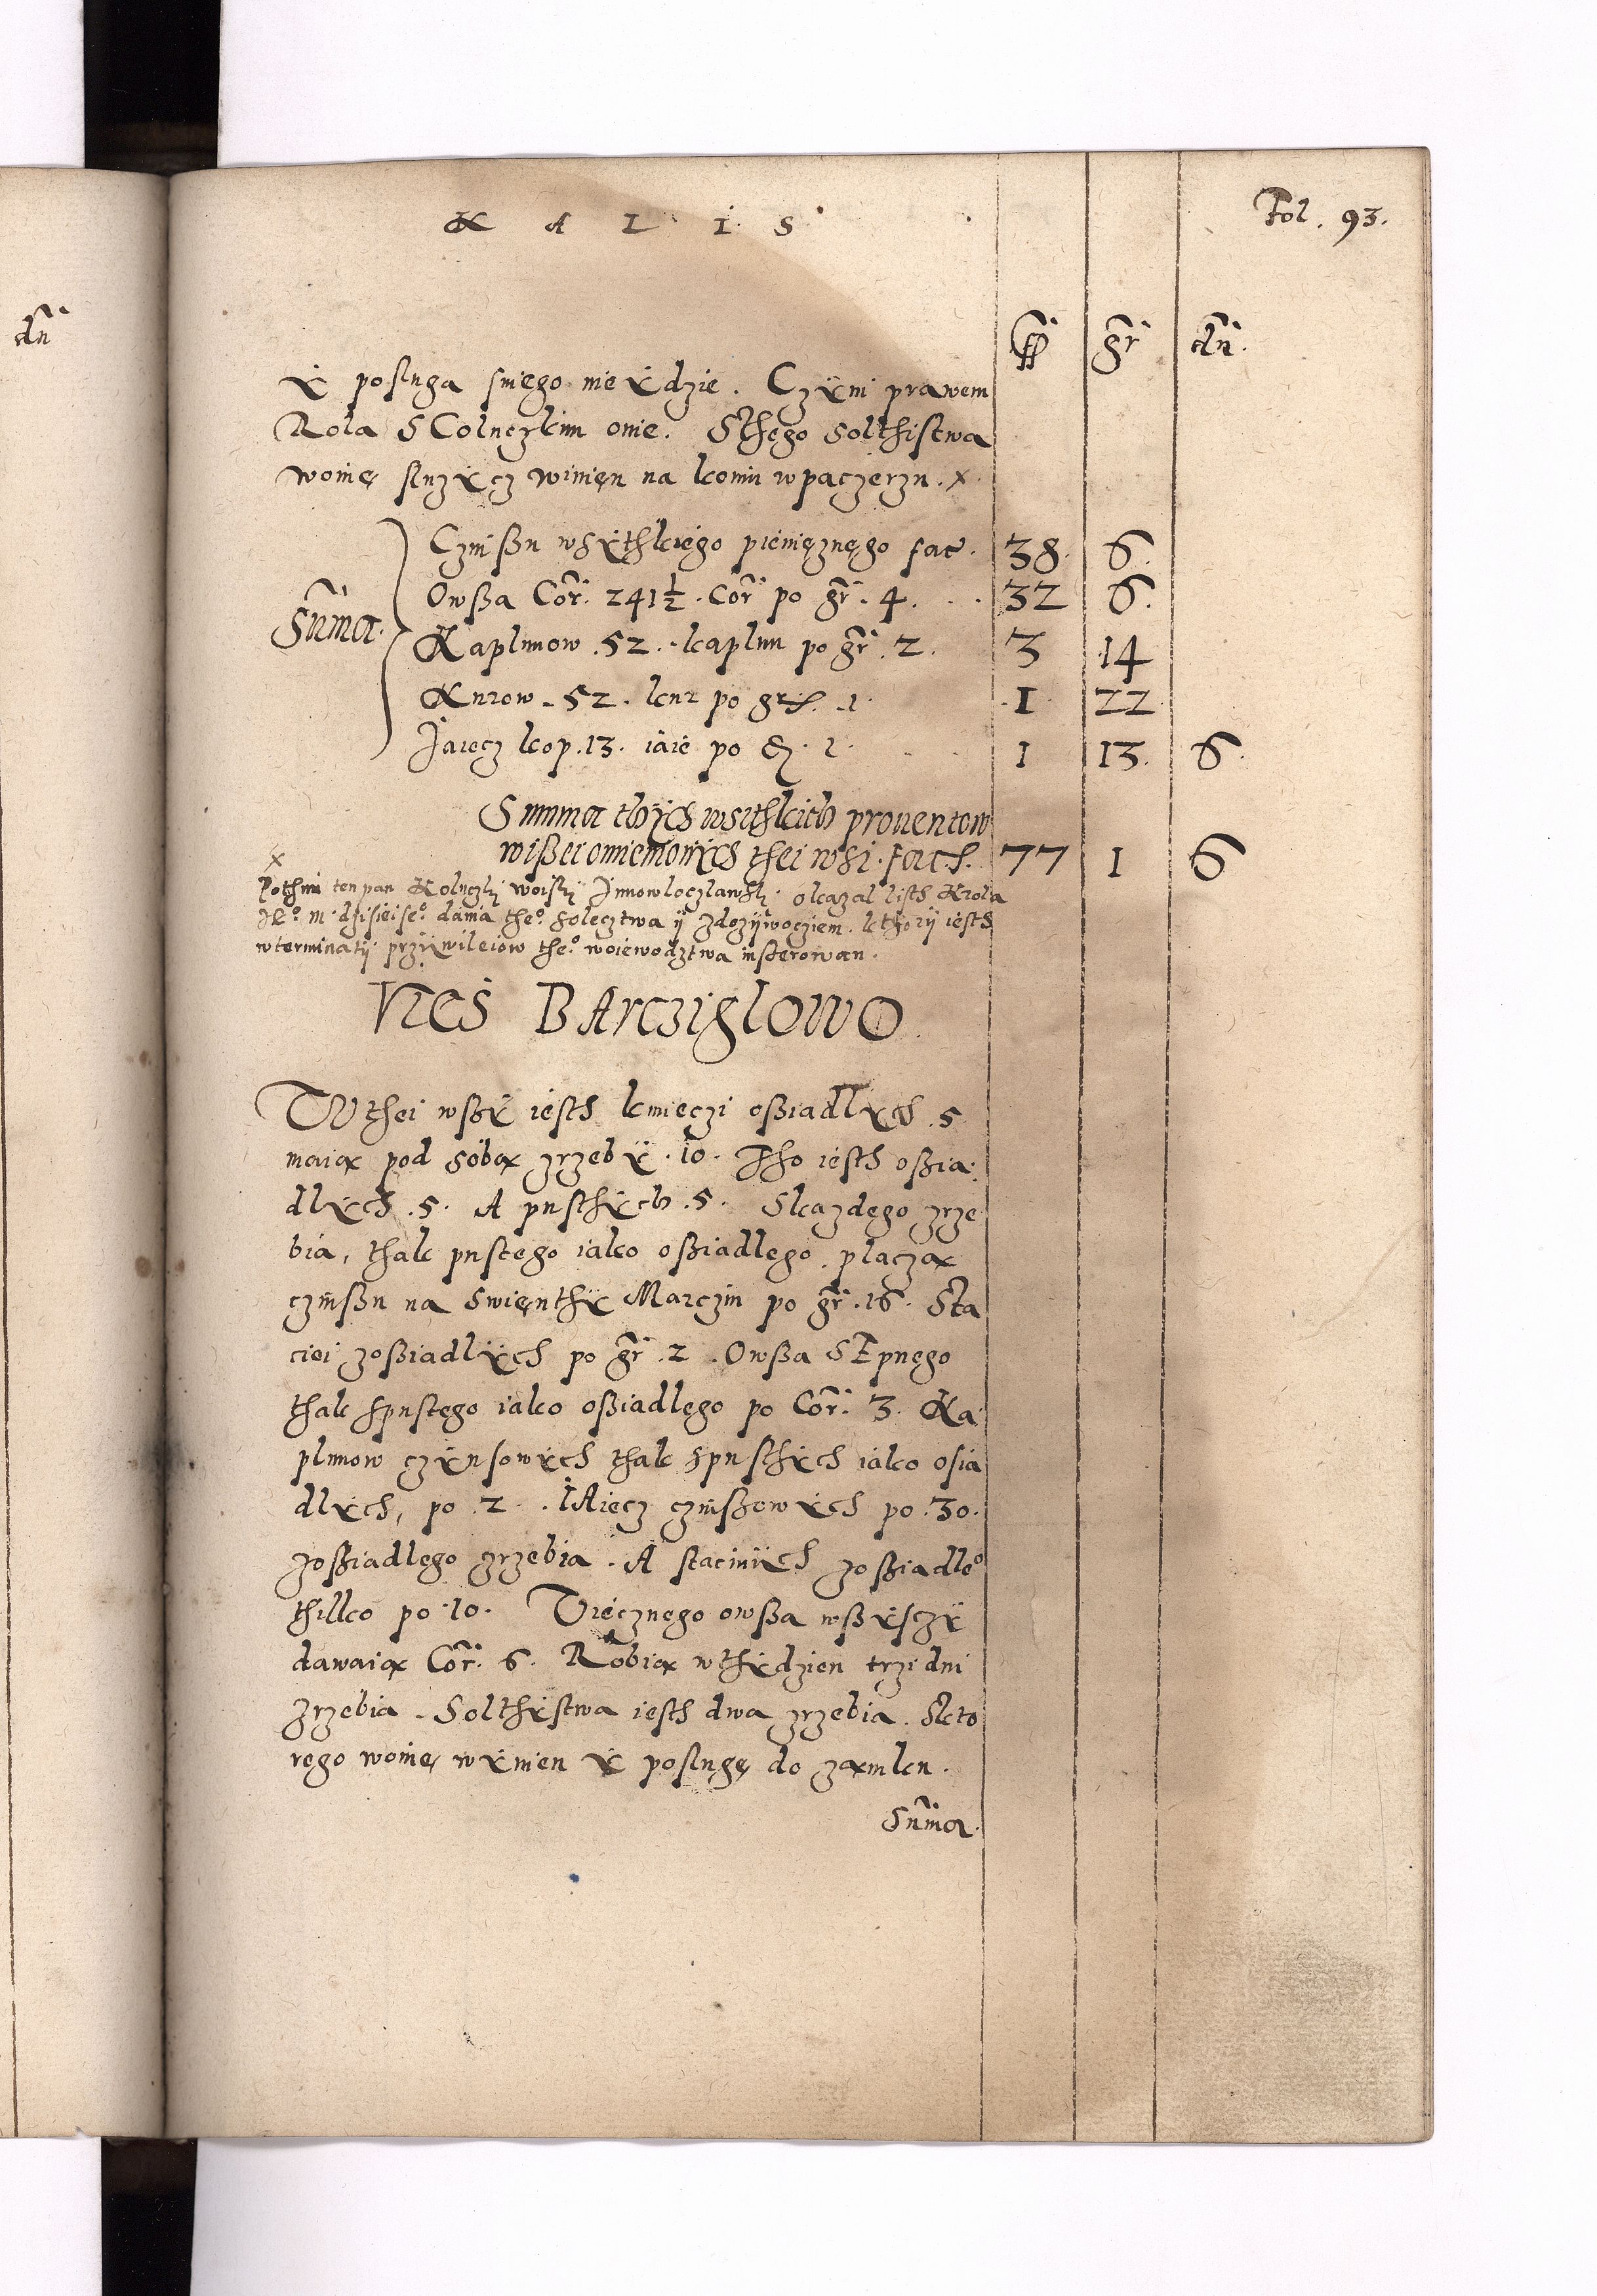 K A L I S
Fol. 93.
ff gr dn.
dn
ẏ posługa sniego nie ẏdzie. Czẏni prawem
Rola SColuczkim onie. Sthego solthistwa
woinę służẏcz winien na koniu wpaczerzu. x
Czinßu wsẏthkiego pieniężnęgo fac. 38. 6.
Sum̃a. Owßa Cor. 241½. Cor po gr. 4. 32 6.
Kaplunow .52. kaplun po gr. 2. 3 14
Kurow .52. kur po grß. 1. 1 22
Jaiecz kop .13. iaie po .1. 1 13. 6.
Summa thÿch wsithkich prouentow
wißei omienionÿch thei wsi. facit. 77 1 6
x
Pothim ten pan Koluczki woiski Jnnowloczlawski okazal listh Krola
Je° m dzisieise° dania the° solecztwa ÿ zdoziiwoczięm. kthorii iesth
wterminatÿ przẏwileiow the° woiewodztwa inserowan.
VIES BArcziglowo
W thei wsẏ iesth kmieczi oßiadlẏch .5
maią pod sobą zrzebẏ .10. Tho iesth oßia
dlẏch .5. A pusthẏch .5. Skazdego zrze
bia, thak pustego iako oßiadlego. placzą
czinßu na swięnthẏ Marczin po gr .16. Sta
ciei zoßiadlẏch po gr .2. Owßa SEpnego
thak spustego iako oßiadlego po Cor. 3. Ka
plunow czẏnsowẏch thak spusthẏch iako osia
dlẏch, po .2. IAiecz czinßowẏch po .30.
zoßiadlego zrzebia. A staciinẏch zoßiadle°
thilko po .10. Wiecznego owßa wßẏsczẏ
dawaią Cor. 6. Robią wthẏdzien trzi dni
zrzebia. Solthẏstwa iesth dwa zrzebia. Skto
rego woinę wẏnien ẏ poslugę do zamku.
Sum̃a.